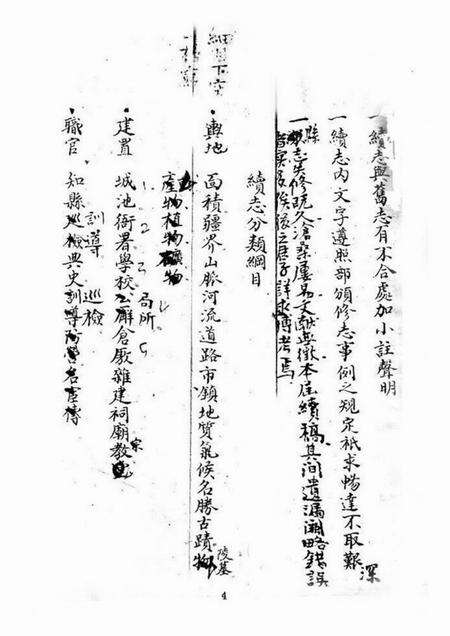 一續志與舊志有不合處加小註聲明
一續志内文字遵照部頒修志事例之規定祇求暢達不取艱深
一縣志失修既久滄桑屢易文獻無徵本屆續稿其間遺漏闕略錯誤
實多俟後之君子詳求博考焉
續志分類綱目
輿地 面積疆界山脈河流道路市鎮地質氣候名勝古蹟
陵墓
產物植物礦物
建置 城池衙署學校公廨倉廒雜建祠廟教
局所
宗
職官 知縣巡檢典史訓導
訓導 巡檢
細目下空
4